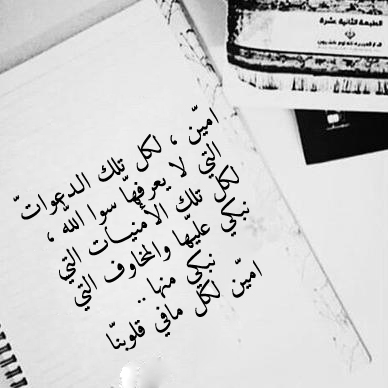 الطبعة الثانية عشرة
امیّن ، لكل تلك الدعواتّ
التي لا يعرفهّا سوا اللهّ ،
لكل تلك الأمنيات التي
نبكي عليّها والمخاوف التيّ
نبكي منها ..
اميّن لكل مافي قلوبنّا